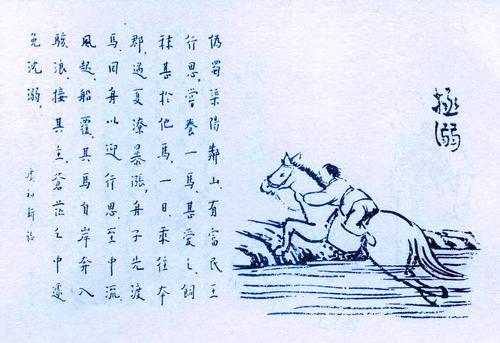 拯溺
偽蜀渠陽鄰山、有富民王
行思、嘗養一馬、甚愛之、飼
秣甚於他馬、一日、乘往本
郡、遇夏潦暴漲、舟子先渡
馬、回舟以迎行思、至中流、
風起、船覆、其馬自岸奔入
駭浪、接其主、蒼茫之中、遽
免沈溺。
虞初新志